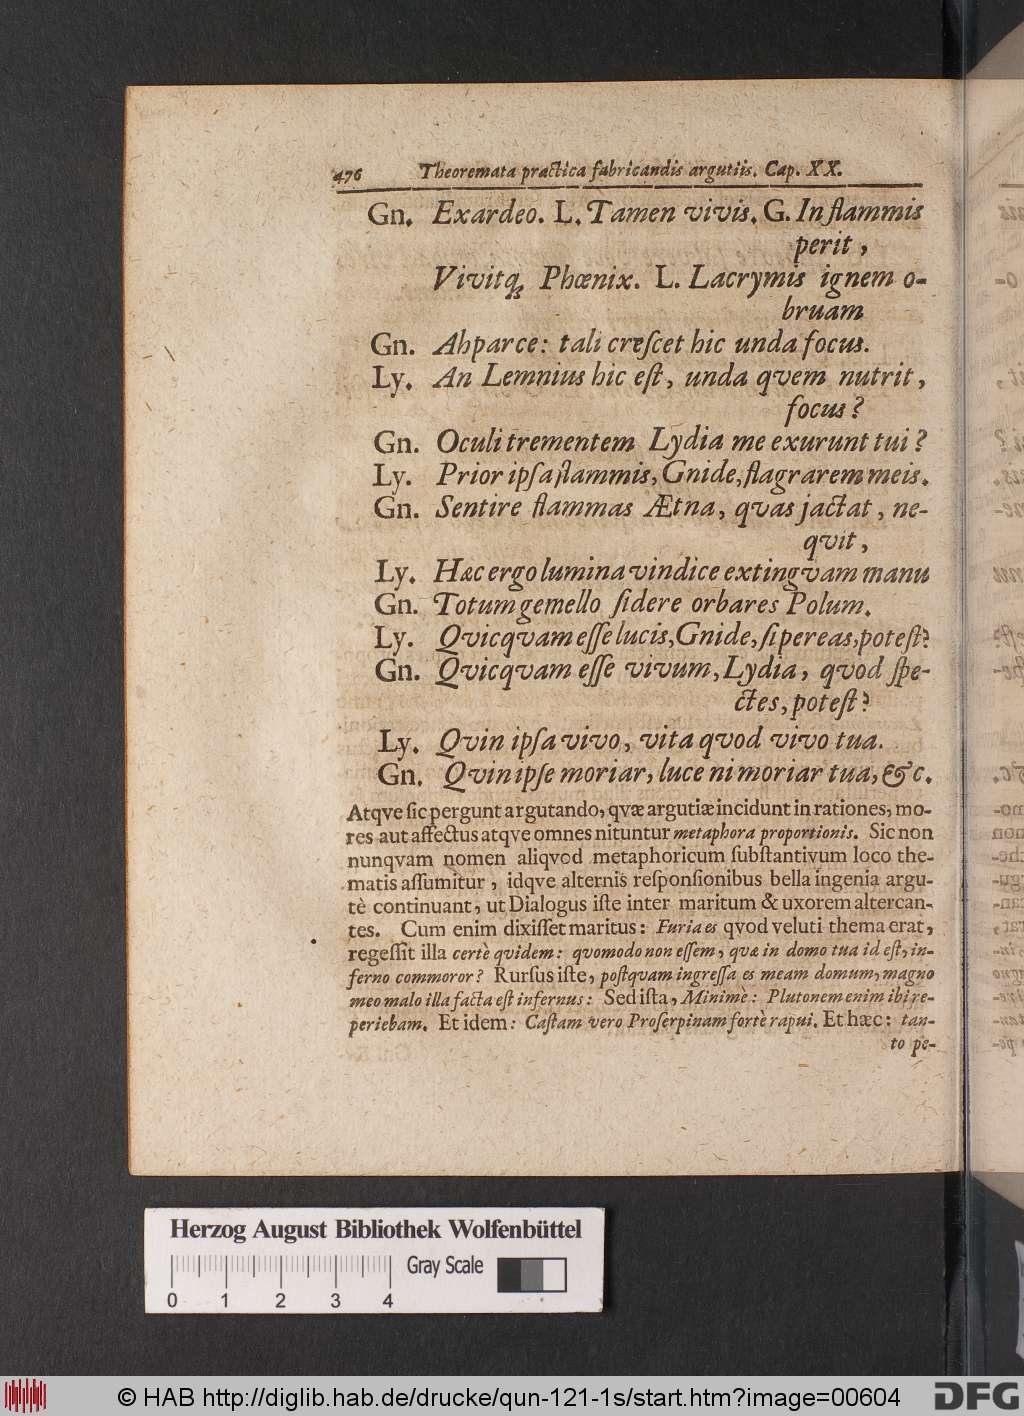 476 Theoremata practica fabricandis argutiis. Cap. XX.
Gn. Exardeo. L. Tamen vivis. G. In flammis
perit,
Vivitq; Phœnix. L. Lacrymis ignem o-
bruam
Gn. Ah parce: tali creſcet hic unda focus.
Ly. An Lemnius hic eſt, unda qvem nutrit,
focus?
Gn. Oculi trementem Lydia me exurunt tui?
Ly. Prior ipſa flammis, Gnide, flagrarem meis.
Gn. Sentire flammas Ætna, qvas jactat, ne-
qvit,
Ly. Hæc ergo lumina vindice extingvam manu
Gn. Totum gemello ſidere orbares Polum.
Ly. Qvicqvam eſſe lucis, Gnide, ſi pereas, poteſt?
Gn. Qvicqvam eſſe vivum, Lydia, qvod ſpe-
ctes, poteſt?
Ly. Qvin ipſa vivo, vita qvod vivo tua.
Gn. Qvin ipſe moriar, luce ni moriar tua, &c.
Atqve ſic pergunt argutando, qvæ argutiæ incidunt in rationes, mo-
res aut affectus atqve omnes nituntur metaphora proportionis. Sic non
nunqvam nomen aliqvod metaphoricum ſubſtantivum loco the-
matis aſſumitur, idqve alternis reſponſionibus bella ingenia argu-
tè continuant, ut Dialogus iſte inter maritum & uxorem altercan-
tes. Cum enim dixiſſet maritus: Furia es qvod veluti thema erat,
regeſſit illa certè qvidem: qvomodo non eſſem, qvæ in domo tua id eſt, in-
ferno commoror? Rurſus iſte, poſtqvam ingreſſa es meam domum, magno
meo malo illa facta eſt infernus: Sed iſta, Minimè: Plutonem enim ibi re-
periebam. Et idem: Caſtam vero Proſerpinam fortè rapui. Et hæc: tan-
to pe-
Herzog August Bibliothek Wolfenbüttel
Gray Scale
0 1 2 3 4
© HAB http://diglib.hab.de/drucke/qun-121-1s/start.htm?image=00604
DFG